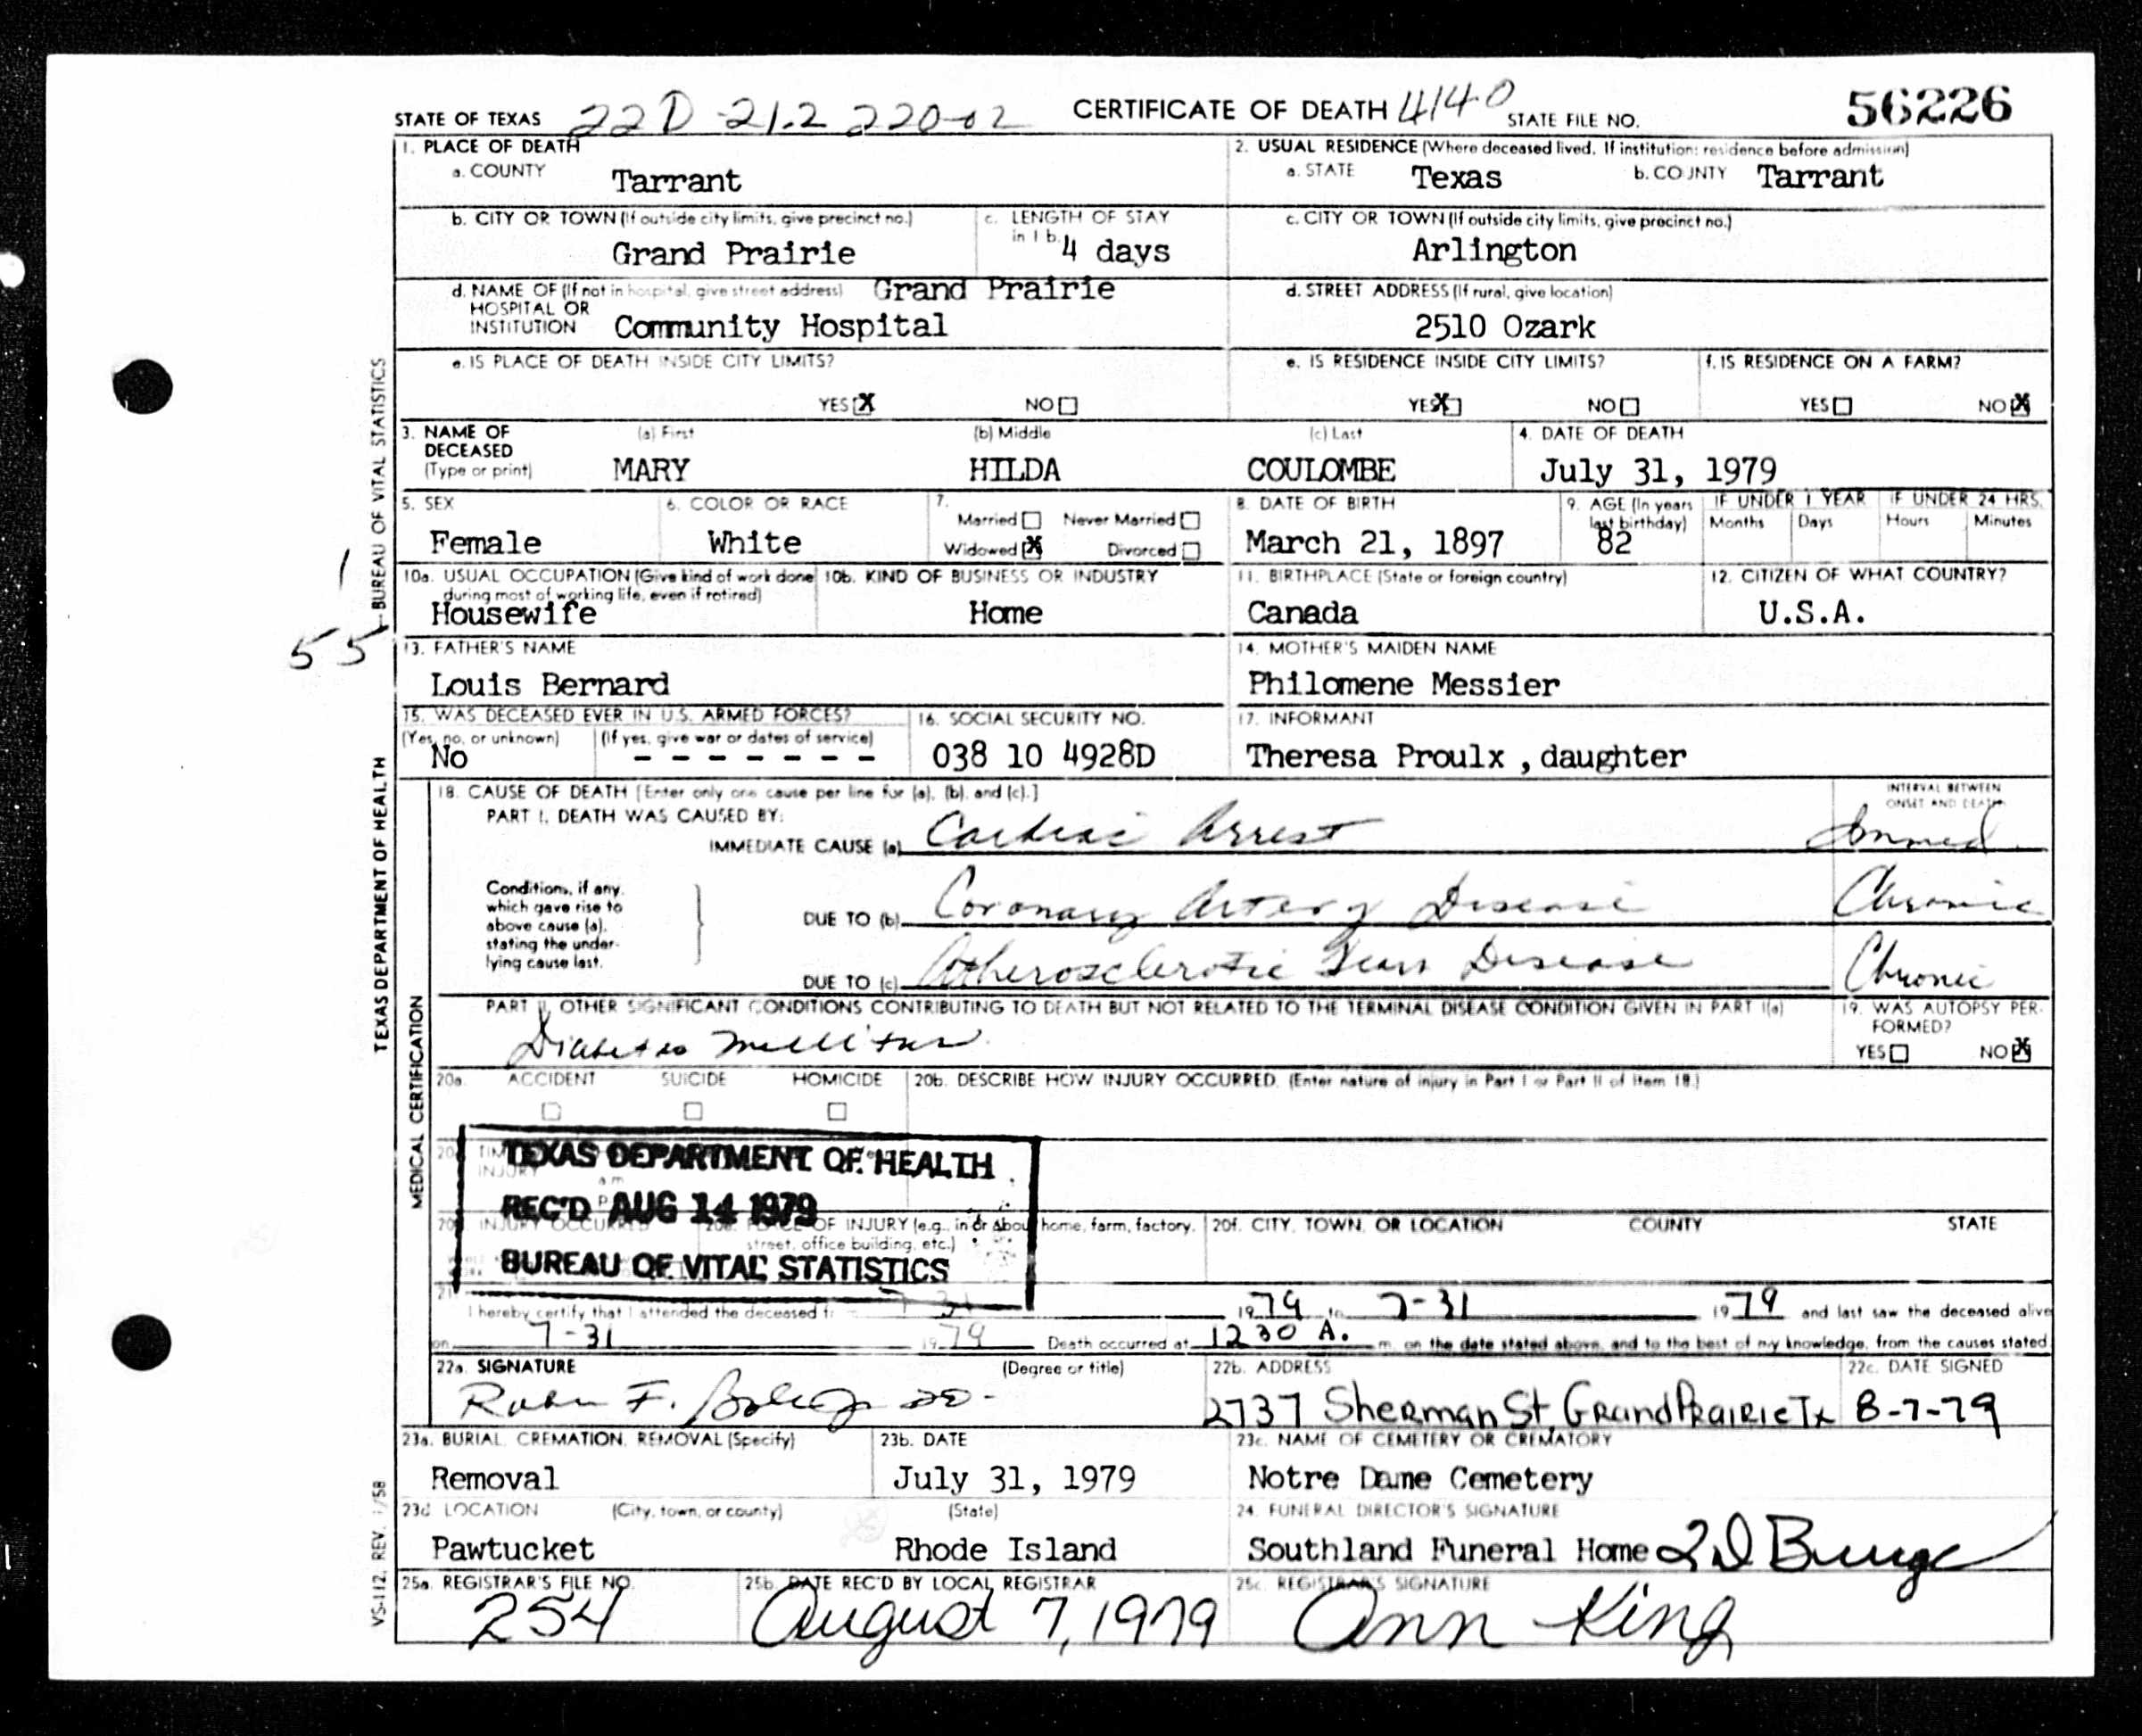 STATE OF TEXAS 22D 21.2 220-02 CERTIFICATE OF DEATH 4140 STATE FILE NO. 56226
1. PLACE OF DEATH
a. COUNTY Tarrant
2. USUAL RESIDENCE (Where deceased lived. If institution: residence before admission)
a. STATE Texas b. COUNTY Tarrant
b. CITY OR TOWN (If outside city limits, give precinct no.)
Grand Prairie
c. LENGTH OF STAY
in 1 b. 4 days
c. CITY OR TOWN (If outside city limits, give precinct no.)
Arlington
d. NAME OF (If not in hospital, give street address) Grand Prairie
HOSPITAL OR
INSTITUTION Community Hospital
d. STREET ADDRESS (If rural, give location)
2510 Ozark
e. IS PLACE OF DEATH INSIDE CITY LIMITS?
YES X NO
e. IS RESIDENCE INSIDE CITY LIMITS?
YES X NO
f. IS RESIDENCE ON A FARM?
YES NO X
3. NAME OF
DECEASED
(Type or print)
(a) First (b) Middle (c) Last
MARY HILDA COULOMBE
4. DATE OF DEATH
July 31, 1979
5. SEX
Female
6. COLOR OR RACE
White
7.
Married Never Married
Widowed X Divorced
8. DATE OF BIRTH
March 21, 1897
9. AGE (In years
last birthday)
82
IF UNDER 1 YEAR
Months Days
IF UNDER 24 HRS.
Hours Minutes
10a. USUAL OCCUPATION (Give kind of work done
during most of working life, even if retired)
Housewife
10b. KIND OF BUSINESS OR INDUSTRY
Home
11. BIRTHPLACE (State or foreign country)
Canada
12. CITIZEN OF WHAT COUNTRY?
U.S.A.
13. FATHER'S NAME
Louis Bernard
14. MOTHER'S MAIDEN NAME
Philomene Messier
15. WAS DECEASED EVER IN U.S. ARMED FORCES?
(Yes, no, or unknown) (If yes, give war or dates of service)
No - - - - - - -
16. SOCIAL SECURITY NO.
038 10 4928D
17. INFORMANT
Theresa Proulx , daughter
18. CAUSE OF DEATH [Enter only one cause per line for (a), (b), and (c).]
INTERVAL BETWEEN
ONSET AND DEATH
PART I. DEATH WAS CAUSED BY:
IMMEDIATE CAUSE (a) Cardiac Arrest Immed.
Conditions, if any,
which gave rise to
above cause (a),
stating the under-
lying cause last.
DUE TO (b) Coronary Artery Disease Chronic
DUE TO (c) Atherosclerotic Disease Chronic
PART II. OTHER SIGNIFICANT CONDITIONS CONTRIBUTING TO DEATH BUT NOT RELATED TO THE TERMINAL DISEASE CONDITION GIVEN IN PART I(a)
Diabetes Mellitus
19. WAS AUTOPSY PER-
FORMED?
YES NO X
20a. ACCIDENT SUICIDE HOMICIDE
20b. DESCRIBE HOW INJURY OCCURRED. (Enter nature of injury in Part I or Part II of item 18.)
TEXAS DEPARTMENT OF HEALTH
REC'D AUG 14 1979
BUREAU OF VITAL STATISTICS
INJURY OCCURRED OF INJURY (e.g., in or about home, farm, factory,
street, office building, etc.)
20f. CITY, TOWN, OR LOCATION COUNTY STATE
21. I hereby certify that I attended the deceased 1979 to 7-31 1979 and last saw the deceased alive
on 7-31 1979 Death occurred at 1230 A. m. on the date stated above, and to the best of my knowledge, from the causes stated.
22a. SIGNATURE (Degree or title)
F. DO-
22b. ADDRESS
2737 Sherman St. Grand Prairie Tx
22c. DATE SIGNED
8-7-79
23a. BURIAL, CREMATION, REMOVAL (Specify)
Removal
23b. DATE
July 31, 1979
23c. NAME OF CEMETERY OR CREMATORY
Notre Dame Cemetery
23d. LOCATION (City, town, or county) (State)
Pawtucket Rhode Island
24. FUNERAL DIRECTOR'S SIGNATURE
Southland Funeral Home
25a. REGISTRAR'S FILE NO.
254
25b. DATE REC'D BY LOCAL REGISTRAR
August 7, 1979
25c. REGISTRAR'S SIGNATURE
Ann King
TEXAS DEPARTMENT OF HEALTH—BUREAU OF VITAL STATISTICS
MEDICAL CERTIFICATION
VS-112, REV. 1/58
1
55